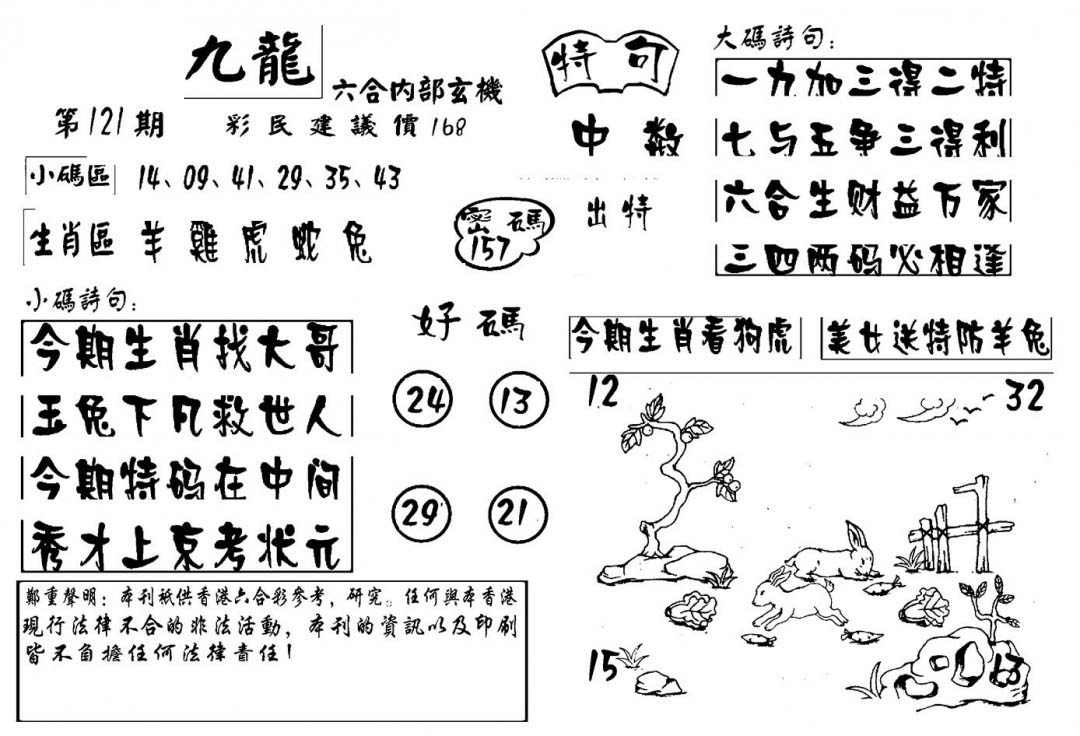 九龍
六合内部玄機
第121期
彩民建議價168
小碼區 14、09、41、29、35、43
生肖區 羊雞虎蛇兔
密碼
157
小碼詩句:
今期生肖找大哥
玉兔下凡救世人
今期特码在中间
秀才上京考状元
好碼
24 13
29 21
鄭重聲明:本刊祇供香港六合彩參考,研究。任何與本香港
現行法律不合的非法活動,本刊的資訊以及印刷
皆不負擔任何法律責任!
特句
中数
出特
大碼詩句:
一力加三得二特
七与五争三得利
六合生财益万家
三四两码必相逢
今期生肖看狗虎
美女送特防羊兔
12 32
15 13